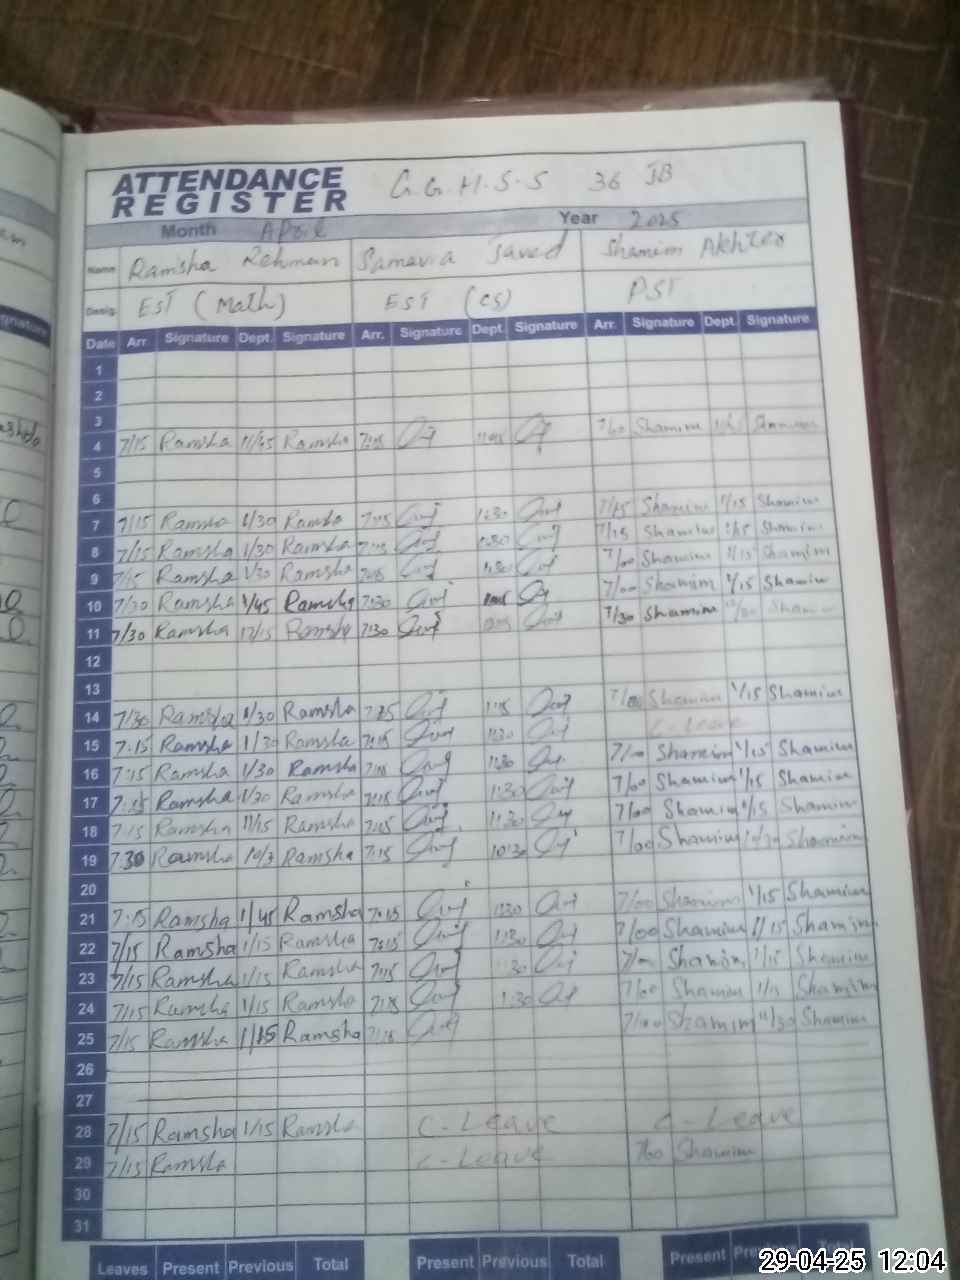 ATTENDANCE REGISTER G.G.H.S.S 36 JB
Month April Year 2025
Name Ramsha Rehman Samavia Javed Shamim Akhter
Desig. EST (Math) EST (CS) PST
Date Arr. Signature Dept. Signature Arr. Signature Dept. Signature Arr. Signature Dept. Signature
1
2
3
4 7/15 Ramsha 11/45 Ramsha 7/00 Shamim Shamim
5
6
7 7/15 Ramsha 1/30 Ramsha 7:15 1:30 7/15 Shamim 1/15 Shamim
8 7/15 Ramsha 1/30 Ramsha 7:15 1:30 7/15 Shamim 1/15 Shamim
9 7/15 Ramsha 1/30 Ramsha 1:30 7/00 Shamim 1/15 Shamim
10 7/30 Ramsha 1/45 Ramsha 7:30 7/00 Shamim 1/15 Shamim
11 7/30 Ramsha 12/15 Ramsha 7:30 7/30 Shamim Shamim
12
13
14 7/30 Ramsha 1/30 Ramsha 7:15 1:15 7/00 Shamim 1/15 Shamim
15 7:15 Ramsha 1/30 Ramsha 7:15 1:30 C-Leave
16 7:15 Ramsha 1/30 Ramsha 1:30 7/00 Shamim 1/15 Shamim
17 7:15 Ramsha 1/30 Ramsha 7:15 1:30 7/00 Shamim 1/15 Shamim
18 7:15 Ramsha 11/15 Ramsha 7:15 11:30 7/00 Shamim 1/15 Shamim
19 7:30 Ramsha Ramsha 7:15 10:30 7/00 Shamim Shamim
20
21 7:15 Ramsha 1/45 Ramsha 7:15 1:30 7/00 Shamim 1/15 Shamim
22 7/15 Ramsha 1/15 Ramsha 7:15 1:30 7/00 Shamim 1/15 Shamim
23 7/15 Ramsha 1/15 Ramsha 7:15 1:30 7/00 Shamim 1/15 Shamim
24 7/15 Ramsha 1/15 Ramsha 7:15 1:30 7/00 Shamim 1/15 Shamim
25 7/15 Ramsha 1/15 Ramsha 7:15 7/00 Shamim 11/30 Shamim
26
27
28 7/15 Ramsha 1/15 Ramsha C-Leave C-Leave
29 7/15 Ramsha C-Leave 7/00 Shamim
30
31
Leaves Present Previous Total Present Previous Total Present Previous Total
29-04-25 12:04